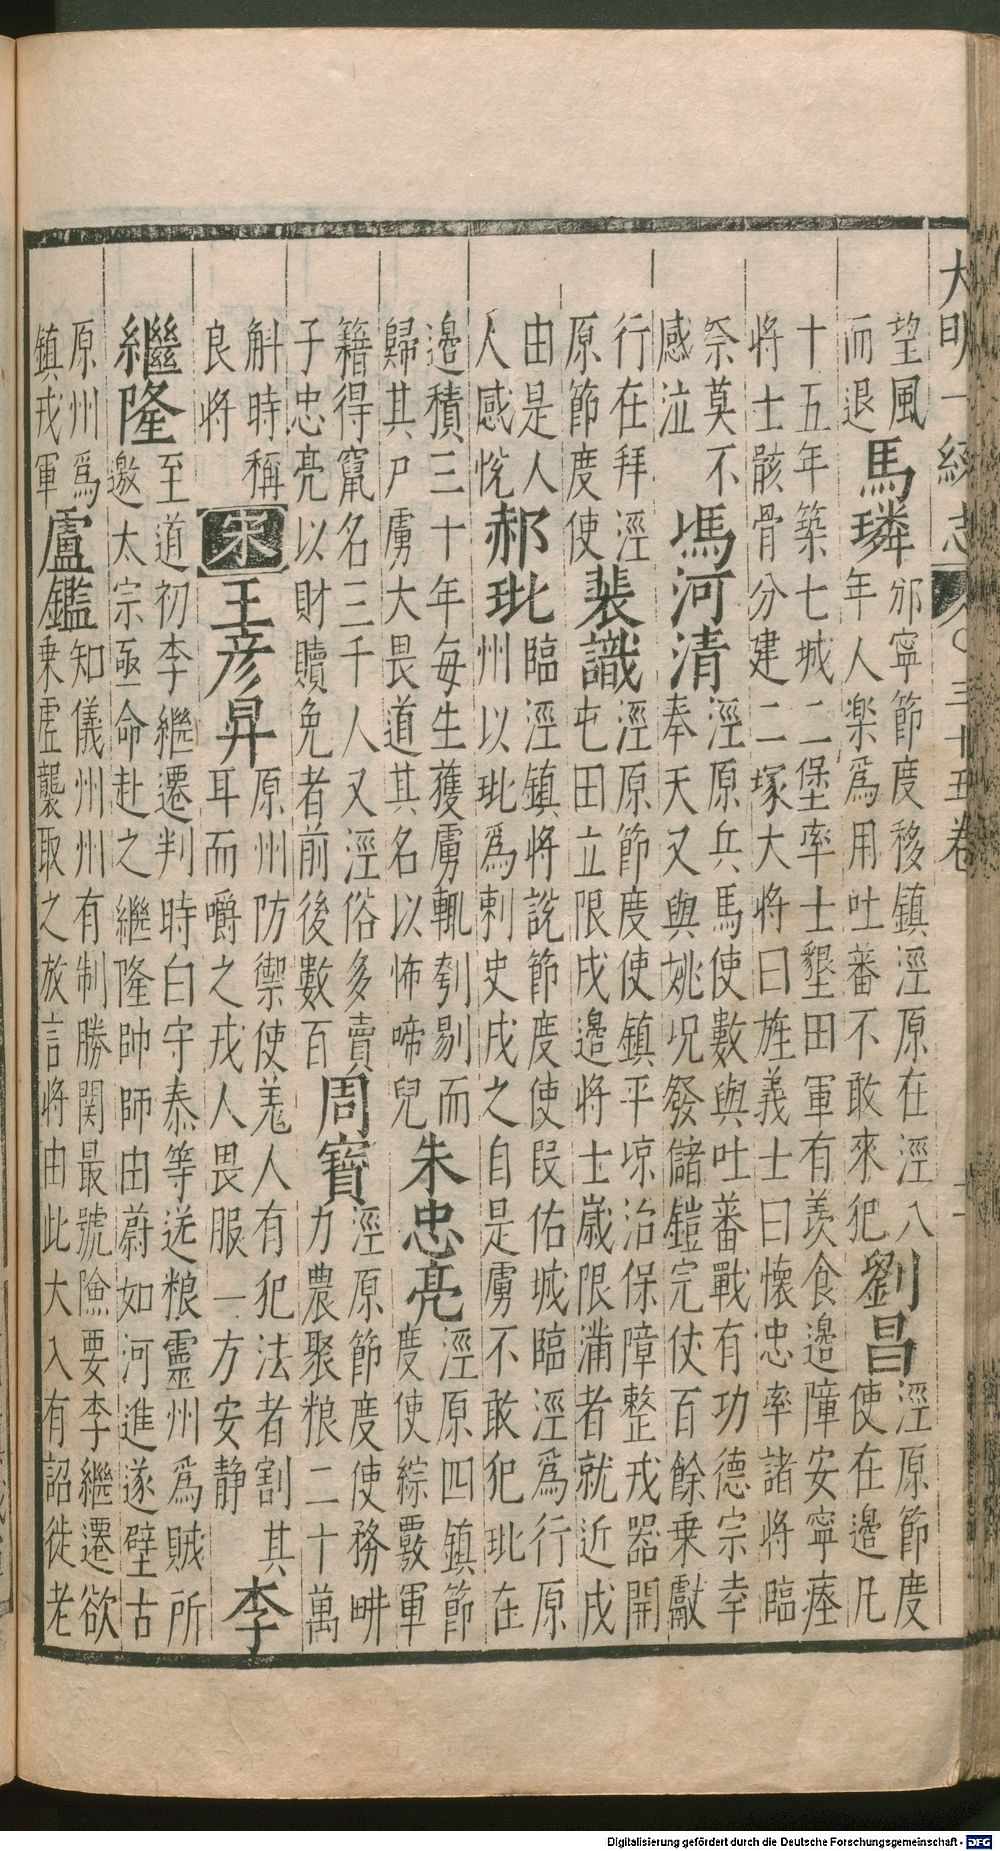 大明一統志 三十五卷 十一
望風
而退
馬璘
邠寧節度移鎮涇原在涇八
年人楽爲用吐蕃不敢來犯
劉昌
涇原節度
使在邊凡
十五年築七城二堡率士墾田軍有羨食邊障安寧瘞
將士骸骨分建二塚大將曰旌義士曰懷忠率諸將臨
祭莫不
感泣
馮河清
涇原兵馬使數與吐蕃戰有功德宗幸
奉天又與姚况發儲鎧完仗百餘乗獻
行在拜涇
原節度使
裴識
涇原節度使鎮平凉治保障整戎器開
屯田立限戍邊將士嵗限滿者就近戍
由是人
人感恱
郝玼
臨涇鎮將說節度使段佑城臨涇爲行原
州以玼爲刺史戍之自是虜不敢犯玼在
邊積三十年每生獲虜輒刳剔而
歸其尸虜大畏道其名以怖啼兒
朱忠亮
涇原四鎮節
度使綜覈軍
籍得竄名三千人又涇俗多賣
子忠亮以財贖免者前後數百
周寳
涇原節度使務畊
力農聚粮二十萬
斛時稱
良將
宋
王彦昇
原州防禦使羗人有犯法者割其
耳而嚼之戎人畏服一方安静
李
繼隆
至道初李繼遷判時白守㳟等送粮靈州爲賊所
邀太宗亟命赴之繼隆帥師由蔚如河進遂壁古
原州爲
鎮戎軍
盧鑑
知儀州州有制勝関最號險要李繼遷欲
乗虚襲取之放言將由此大入有詔徙老
Digitalisierung gefördert durch die Deutsche Forschungsgemeinschaft - DFG